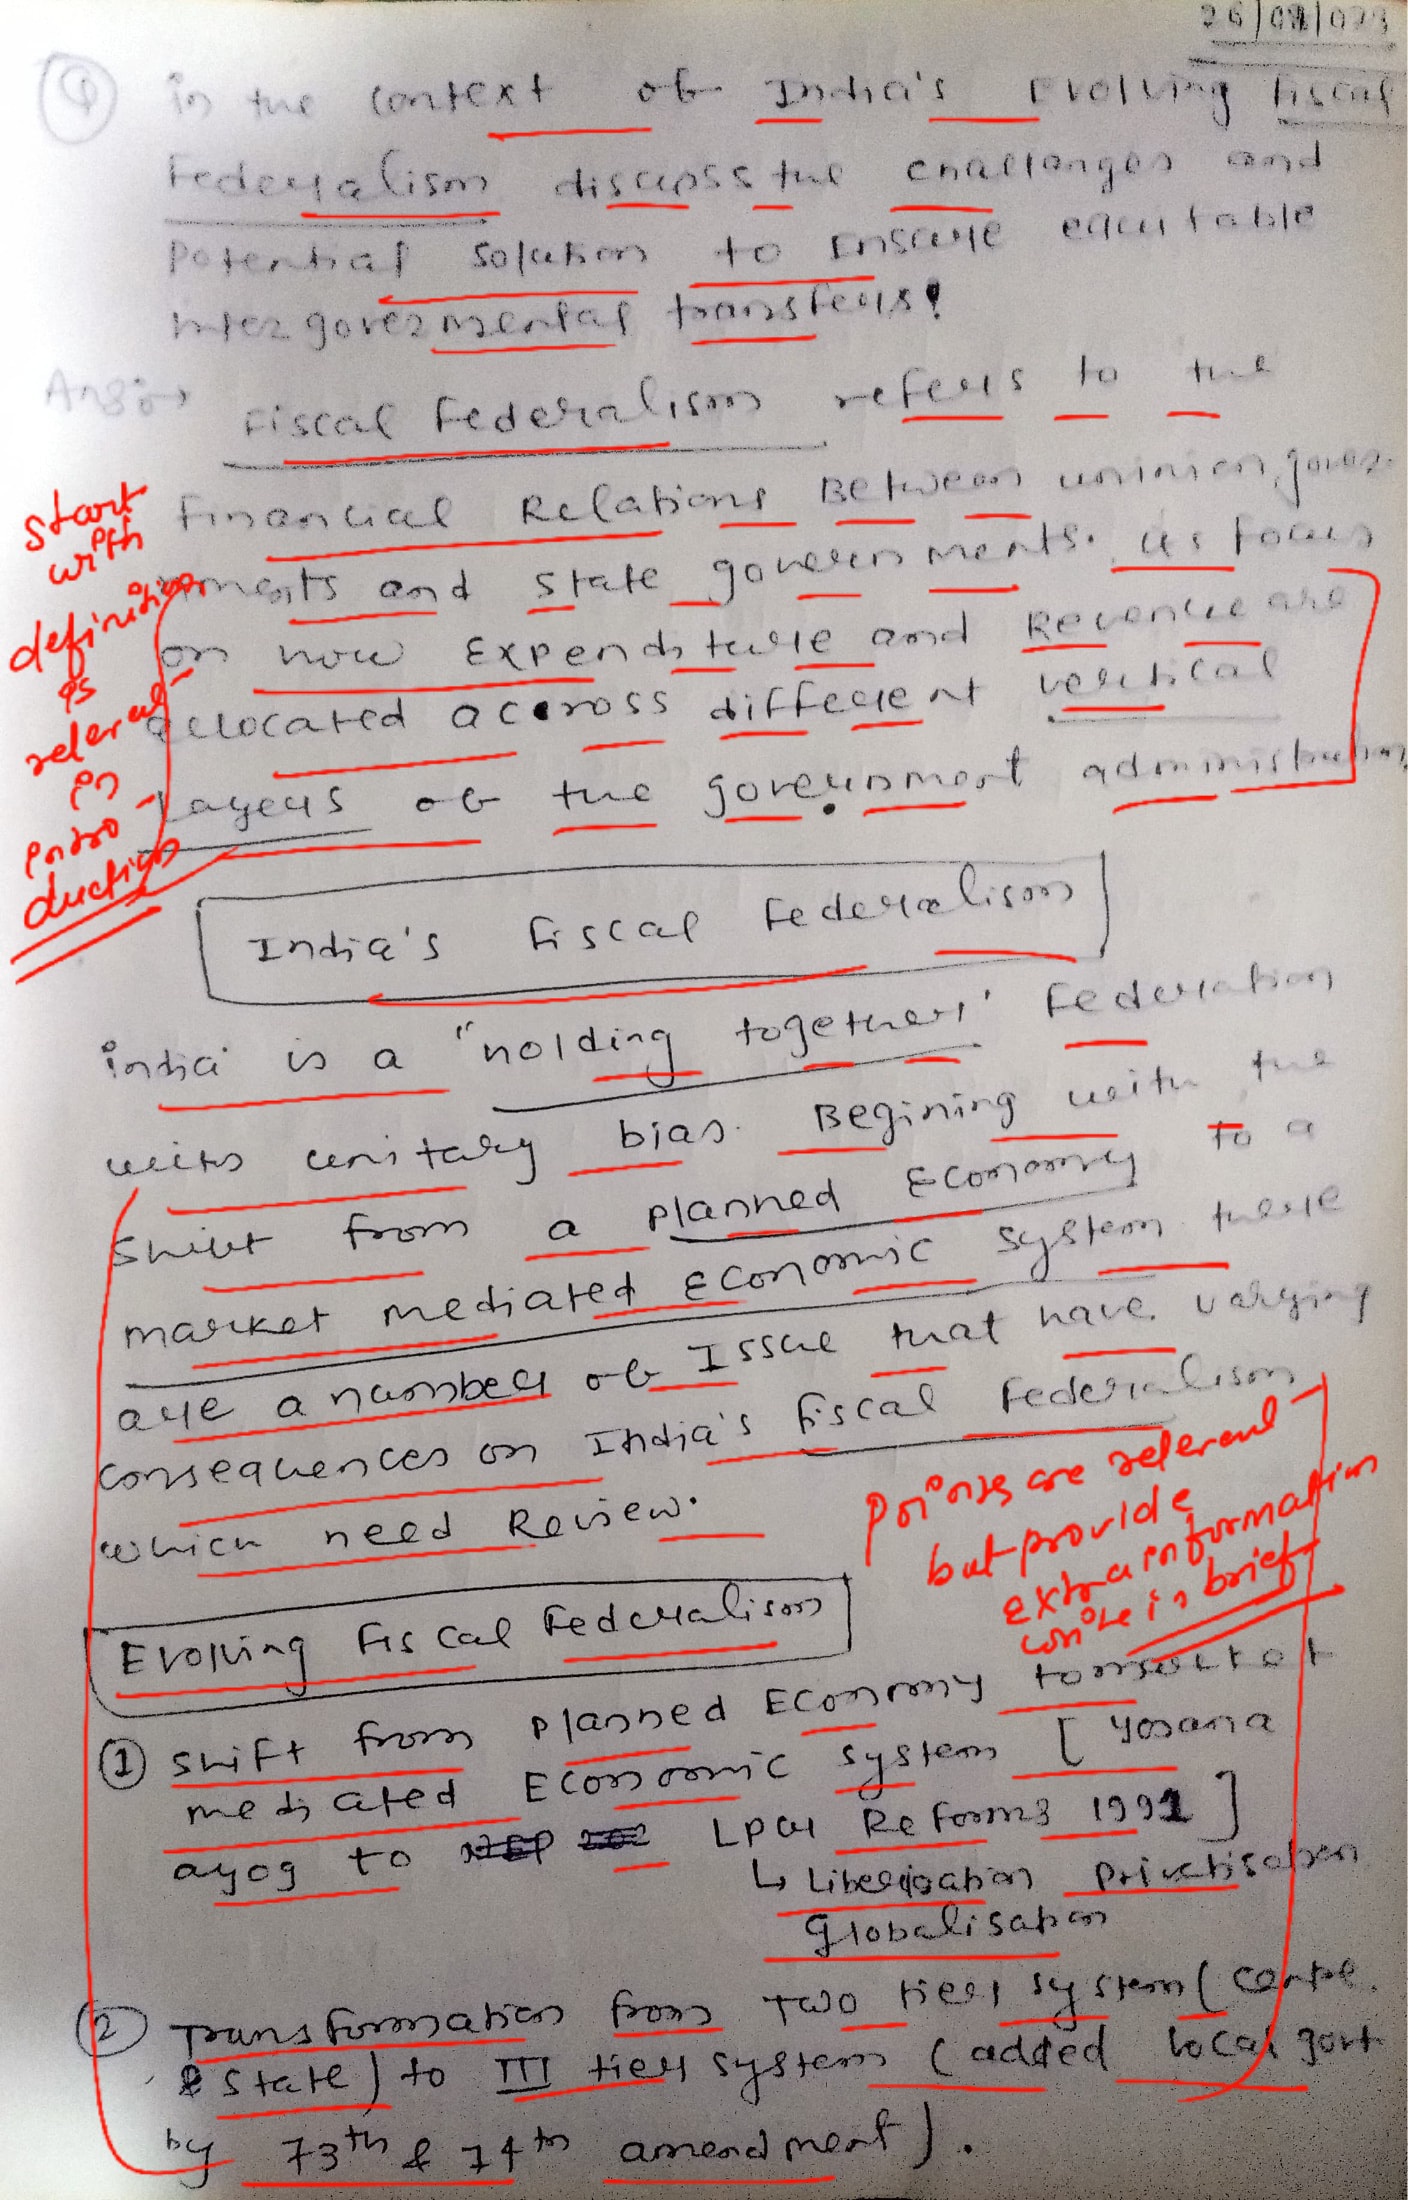 26/08/023
Q in the context of India's Evolving fiscal
Federalism discuss the challanges and
Potential solution to Ensure equitable
inter governmental transfers?
Ans:→ Fiscal Federalism refers to the
Financial Relations Between uninion gover-
nments and state governments. its focus
on how Expenditure and Revenue are
allocated accross different vertical
Layers of the government administration
start
with
definition
is
relevant
in
intro-
duction
India's fiscal Federalism
india is a "holding together' Federation
with unitary bias. Begining with the
shift from a planned Economy to a
market mediated Economic system there
are a number of Issue that have varying
consequences on India's fiscal Federalism
which need Review.
Points are relevant
but provide
extra information
write in brief
Evolving fiscal Federalism
① shift from planned Economy to market
mediated Economic system [Yojana
ayog to LPG Reforms 1991]
↳ Liberlisation Privatisation
Globalisation
② Transformation from Two tier system (centre
& state) to III tier system (added local govt
by 73th & 74th amendment).